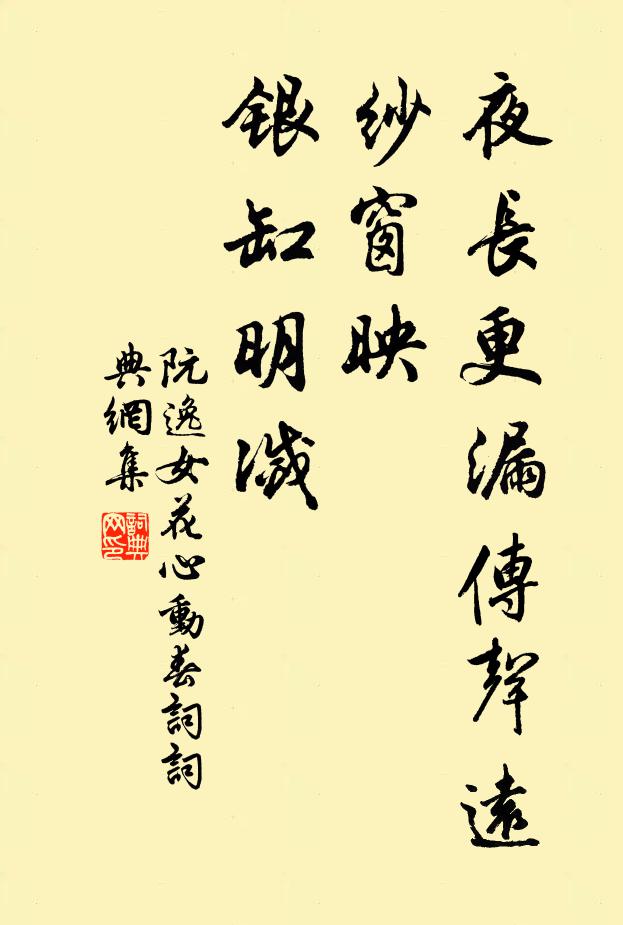 夜長更漏傳聲遠
紗窗映
銀缸明滅
阮逸女花心動春詞詞
典網集
詞典
网印